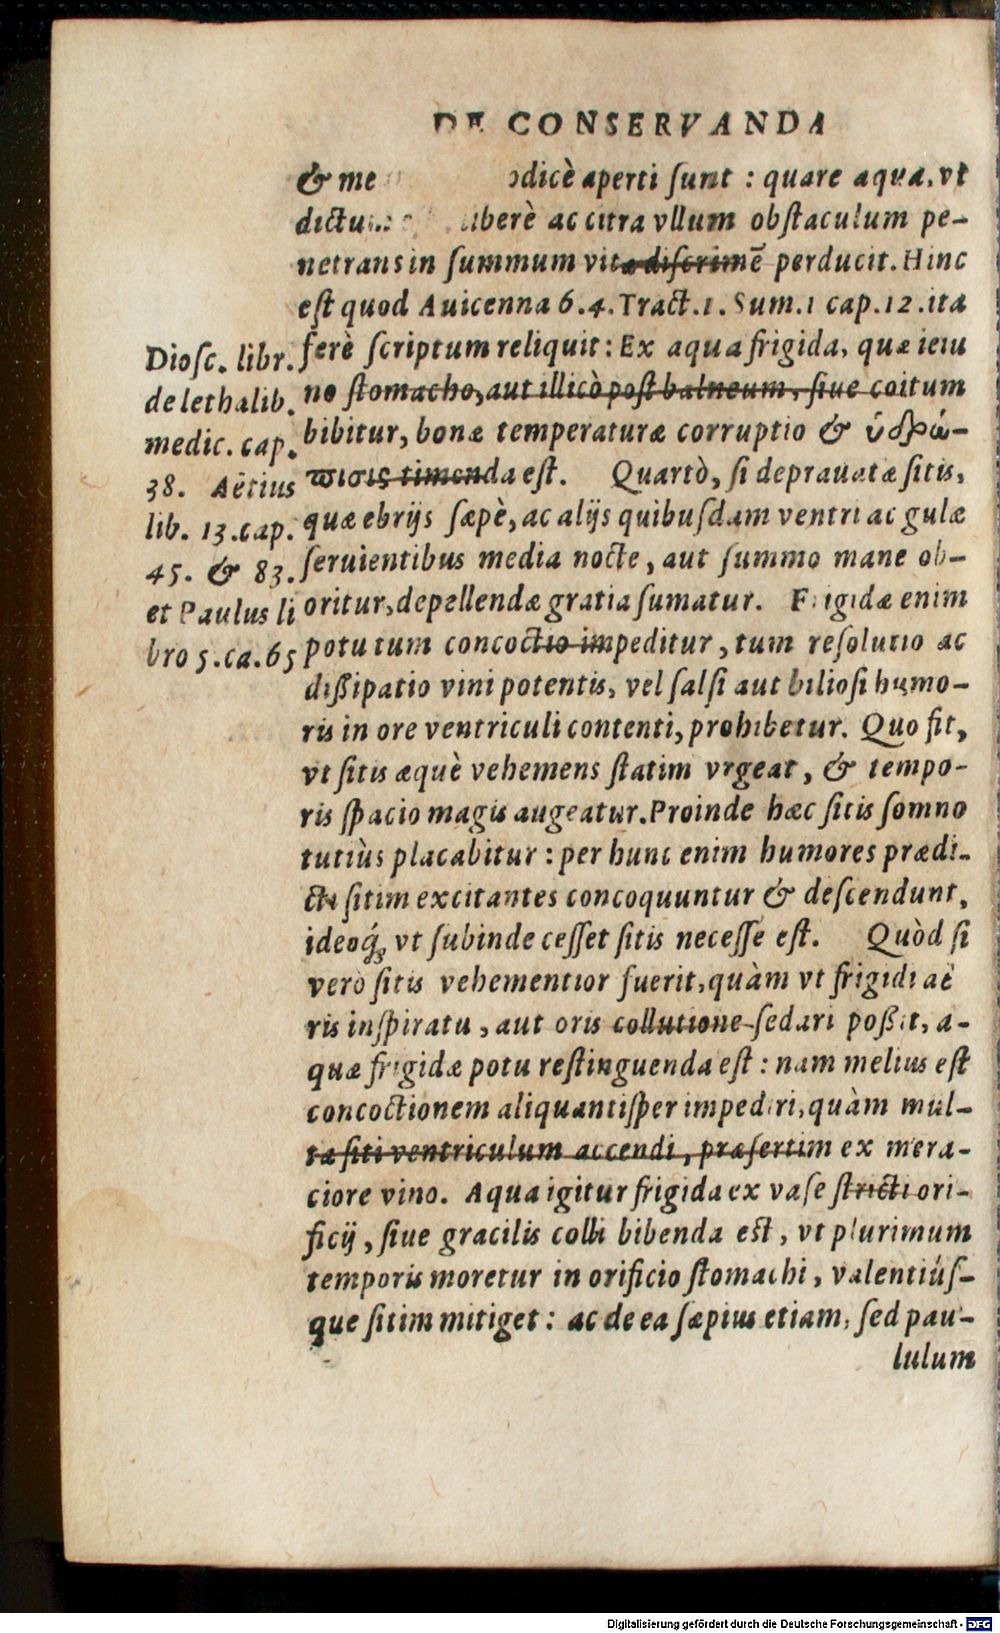 DE CONSERVANDA
& me odicè aperti ſunt : quare aqua, vt
dictum iberè ac citra vllum obſtaculum pe-
netrans in ſummum vitæ diſcrimē perducit. Hinc
eſt quod Auicenna 6.4. Tract.1. Sum.1 cap.12.ita
ferè ſcriptum reliquit: Ex aqua frigida, quæ ieiu
no ſtomacho, aut illicò poſt balneum, ſiue coitum
bibitur, bonæ temperaturæ corruptio & ὑδρώ-
πισις timenda eſt. Quartò, ſi deprauatæ ſitis,
quæ ebrijs ſæpè, ac alijs quibuſdam ventri ac gulæ
ſeruientibus media nocte, aut ſummo mane ob-
oritur, depellendæ gratia ſumatur. Frigidæ enim
potu tum concoctio impeditur, tum reſolutio ac
dißipatio vini potentis, vel ſalſi aut bilioſi humo-
ris in ore ventriculi contenti, prohibetur. Quo fit,
vt ſitis æquè vehemens ſtatim vrgeat, & tempo-
ris ſpacio magis augeatur. Proinde hæc ſitis ſomno
tutiùs placabitur : per hunc enim humores prædi-
cti ſitim excitantes concoquuntur & deſcendunt,
ideoq́ue vt ſubinde ceſſet ſitis neceſſe eſt. Quòd ſi
verò ſitis vehementior fuerit, quàm vt frigidi aë
ris inſpiratu, aut oris collutione ſedari poßit, a-
quæ frigidæ potu reſtinguenda eſt : nam melius eſt
concoctionem aliquantiſper impediri, quàm mul-
ta ſiti ventriculum accendi, præſertim ex mera-
ciore vino. Aqua igitur frigida ex vaſe ſtricti ori-
ficij, ſiue gracilis colli bibenda eſt, vt plurimum
temporis moretur in orificio ſtomachi, valentiúſ-
que ſitim mitiget : ac de ea ſæpius etiam, ſed pau-
lulum
Dioſc. libr.
de lethalib.
medic. cap.
38. Aëtius
lib. 13. cap.
45. & 83.
et Paulus li
bro 5. ca. 65
Digitalisierung gefördert durch die Deutsche Forschungsgemeinschaft - DFG